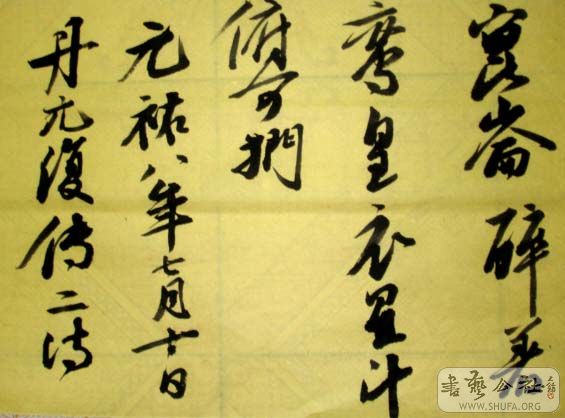 崑崙醉著
鸞皇衣星斗
俯可捫
元祐八年七月十日
丹元復傳二詩
書藝公社
WWW.SHUFA.ORG